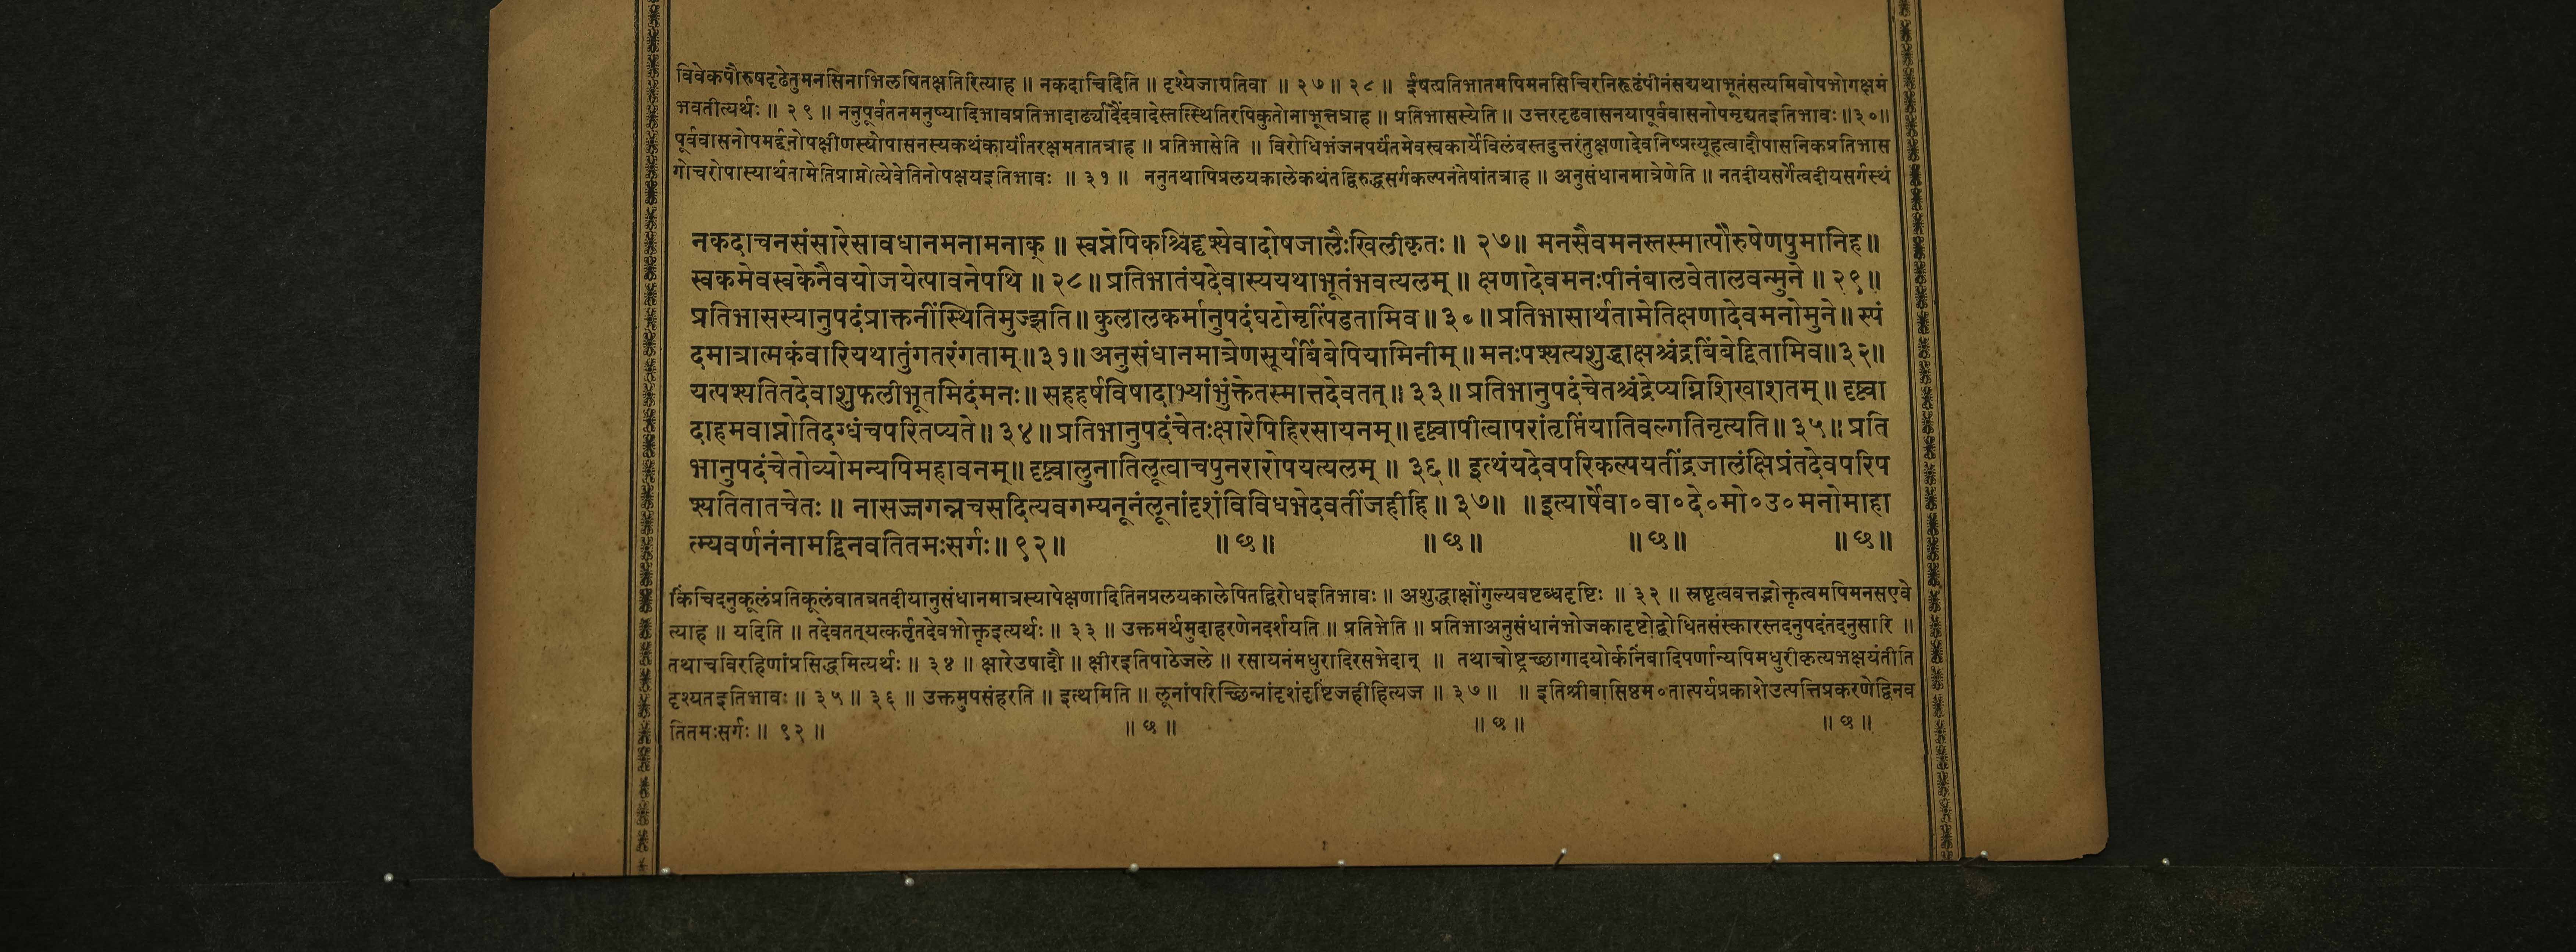 विवेकपौरुषदृढेतुमनसिनाभिलषितक्षतिरित्याह ॥ नकदाचिदिति ॥ दृश्येजाग्रतिवा ॥ २७ ॥ २८ ॥ ईषत्प्रतिभातमपिमनसिचिरनिरूढंपीनंसद्यथाभूतंसत्यमिवोपभोगक्षमं
भवतीत्यर्थः ॥ २९ ॥ ननुपूर्वतनमनुष्यादिभावप्रतिभादार्ढ्यादैंदवादेस्तत्स्थितिरपिकुतोनाभूत्तत्राह ॥ प्रतिभासस्येति ॥ उत्तरदृढवासनयापूर्ववासनोपमृद्यतइतिभावः ॥३०॥
पूर्ववासनोपमर्द्दनोपक्षीणस्योपासनस्यकथंकार्यांतरक्षमतातत्राह ॥ प्रतिभासेति ॥ विरोधिभंजनपर्यंतमेवस्वकार्येविलंबस्तदुत्तरंतुक्षणादेवनिष्प्रत्यूहत्वादौपासनिकप्रतिभास
गोचरोपास्यार्थतामेतिप्राप्नोत्येवेतिनोपक्षयइतिभावः ॥ ३१ ॥ ननुतथापिप्रलयकालेकथंतद्विरुद्धसर्गकल्पनंतेषांतत्राह ॥ अनुसंधानमात्रेणेति ॥ नतदीयसर्गेत्वदीयसर्गस्थं
नकदाचनसंसारेसावधानमनामनाक् ॥ स्वप्नेपिकश्चिद्दृश्येवादोषजालैःखिलीकृतः ॥ २७ ॥ मनसैवमनस्तस्मात्पौरुषेणपुमानिह ॥
स्वकमेवस्वकेनैवयोजयेत्पावनेपथि ॥ २८ ॥ प्रतिभातंयदेवास्ययथाभूतंभवत्यलम् ॥ क्षणादेवमनःपीनंबालवेतालवन्मुने ॥ २९ ॥
प्रतिभासस्यानुपदंप्राक्तनींस्थितिमुज्झति ॥ कुलालकर्मानुपदंघटोमृत्पिंडतामिव ॥ ३० ॥ प्रतिभासार्थतामेतिक्षणादेवमनोमुने ॥ स्पं
दमात्रात्मकंवारियथातुंगतरंगताम् ॥ ३१ ॥ अनुसंधानमात्रेणसूर्यबिंबेपियामिनीम् ॥ मनःपश्यत्यशुद्धाक्षश्चंद्रबिंबेद्वितामिव ॥ ३२ ॥
यत्पश्यतितदेवाशुफलीभूतमिदंमनः ॥ सहहर्षविषादाभ्यांभुंक्तेतस्मात्तदेवतत् ॥ ३३ ॥ प्रतिभानुपदंचेतश्चंद्रेप्यग्निशिखाशतम् ॥ दृष्ट्वा
दाहमवाप्नोतिदग्धंचपरितप्यते ॥ ३४ ॥ प्रतिभानुपदंचेतःक्षारेपिहिरसायनम् ॥ दृष्ट्वापीत्वापरांतृप्तिंयातिवल्गतिनृत्यति ॥ ३५ ॥ प्रति
भानुपदंचेतोव्योमन्यपिमहावनम् ॥ दृष्ट्वालुनातिलूत्वाचपुनरारोपयत्यलम् ॥ ३६ ॥ इत्थंयदेवपरिकल्पयतींद्रजालंक्षिप्रंतदेवपरिप
श्यतितातचेतः ॥ नासज्जगन्नचसदित्यवगम्यनूनंलूनांदृशंविविधभेदवतींजहीहि ॥ ३७ ॥ ॥ इत्यार्षेवा०वा०दे०मो०उ०मनोमाहा
त्म्यवर्णनंनामद्विनवतितमःसर्गः ॥ ९२ ॥ ॥ छ ॥ ॥ छ ॥ ॥ छ ॥ ॥ छ ॥
किंचिदनुकूलंप्रतिकूलंवातत्रतदीयानुसंधानमात्रस्यापेक्षणादितिनप्रलयकालेपितद्विरोधइतिभावः ॥ अशुद्धाक्षोंगुल्यवष्टब्धदृष्टिः ॥ ३२ ॥ स्रष्टृत्ववत्तद्भोक्तृत्वमपिमनसएवे
त्याह ॥ यदिति ॥ तदेवतत्यत्कर्तृतदेवभोक्तृइत्यर्थः ॥ ३३ ॥ उक्तमर्थमुदाहरणेनदर्शयति ॥ प्रतिभेति ॥ प्रतिभाअनुसंधानंभोजकादृष्टोद्बोधितसंस्कारस्तदनुपदंतदनुसारि ॥
तथाचविरहिणांप्रसिद्धमित्यर्थः ॥ ३४ ॥ क्षारेउषादौ ॥ क्षीरइतिपाठेजले ॥ रसायनंमधुरादिरसभेदान् ॥ तथाचोष्ट्रच्छागादयोर्कनिंबादिपर्णान्यपिमधुरीकृत्यभक्षयंतीति
दृश्यतइतिभावः ॥ ३५ ॥ ३६ ॥ उक्तमुपसंहरति ॥ इत्थमिति ॥ लूनांपरिच्छिन्नांदृशंदृष्टिंजहीहित्यज ॥ ३७ ॥ ॥ इतिश्रीवासिष्ठम०तात्पर्यप्रकाशेउत्पत्तिप्रकरणेद्विनव
तितमःसर्गः ॥ ९२ ॥ ॥ छ ॥ ॥ छ ॥ ॥ छ ॥